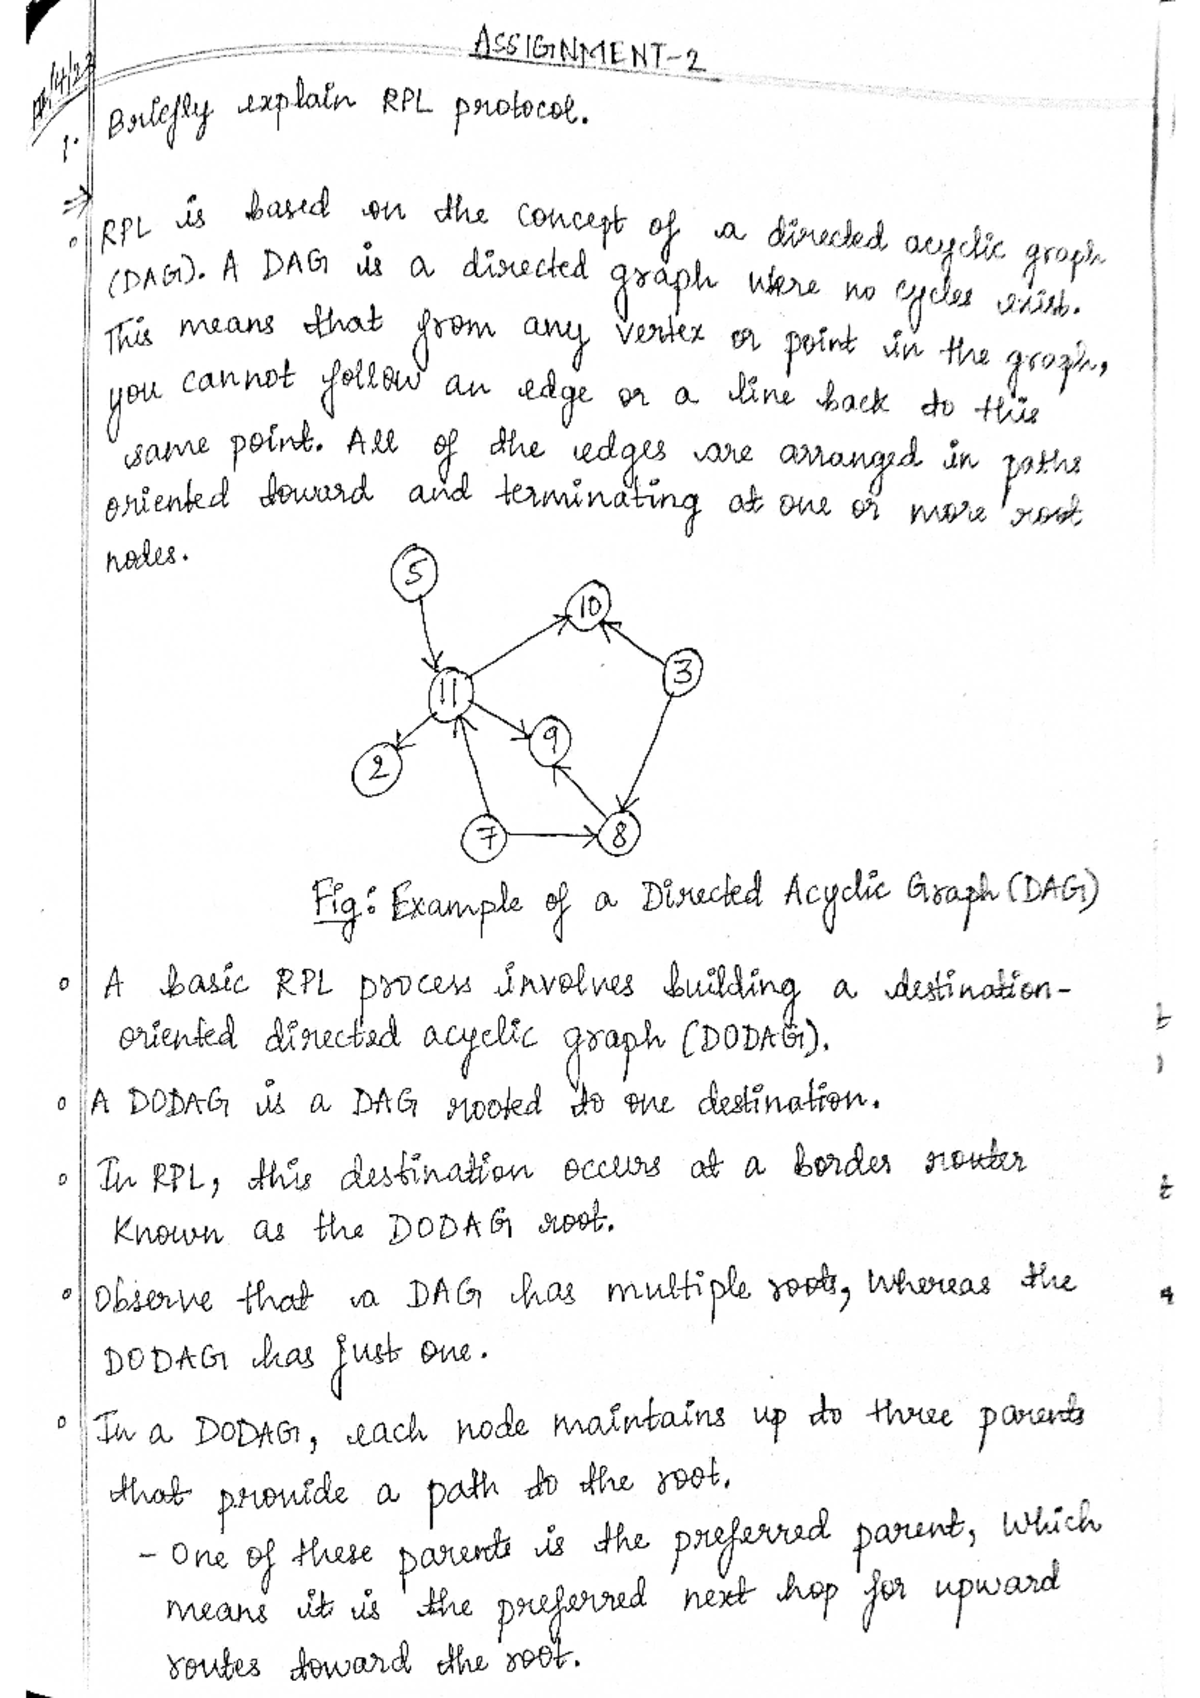 ASSIGNMENT-2
1. Briefly explain RPL protocol.
⇒
• RPL is based on the concept of a directed acyclic graph
(DAG). A DAG is a directed graph where no cycles exist.
This means that from any vertex or point in the graph,
you cannot follow an edge or a line back to this
same point. All of the edges are arranged in paths
oriented toward and terminating at one or more root
nodes.
5
10
3
11
9
2
7
8
Fig: Example of a Directed Acyclic Graph (DAG)
• A basic RPL process involves building a destination-
oriented directed acyclic graph (DODAG).
• A DODAG is a DAG rooted to one destination.
• In RPL, this destination occurs at a border router
Known as the DODAG root.
• Observe that a DAG has multiple roots, Whereas the
DODAG has just one.
• In a DODAG, each node maintains up to three parents
that provide a path to the root.
- One of these parents is the preferred parent, Which
means it is the preferred next hop for upward
routes toward the root.